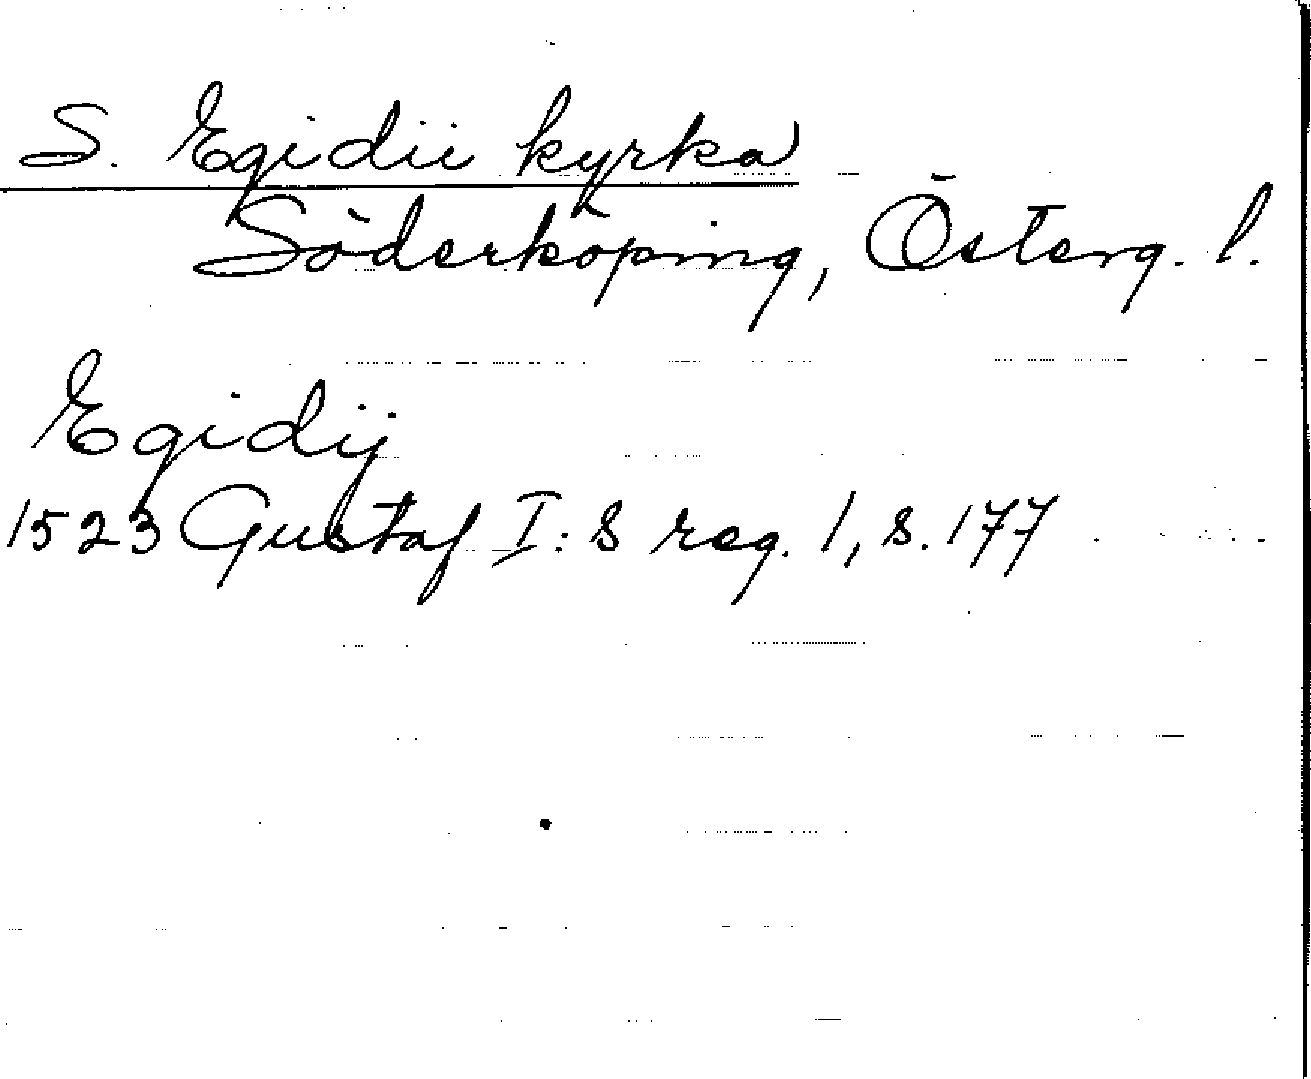 S. Egidii kyrka
Söderköping, Österg. l.
Egidij
1523 Gustaf I: s reg. 1, s. 177